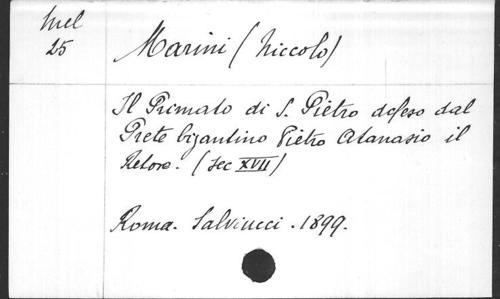 Mel
25
Marini (Niccolo)
Il Primato di S. Pietro difeso dal
Prete bizantino Pietro Atanasio il
Retore. (sec XVII)
Roma. Salviucci. 1899.